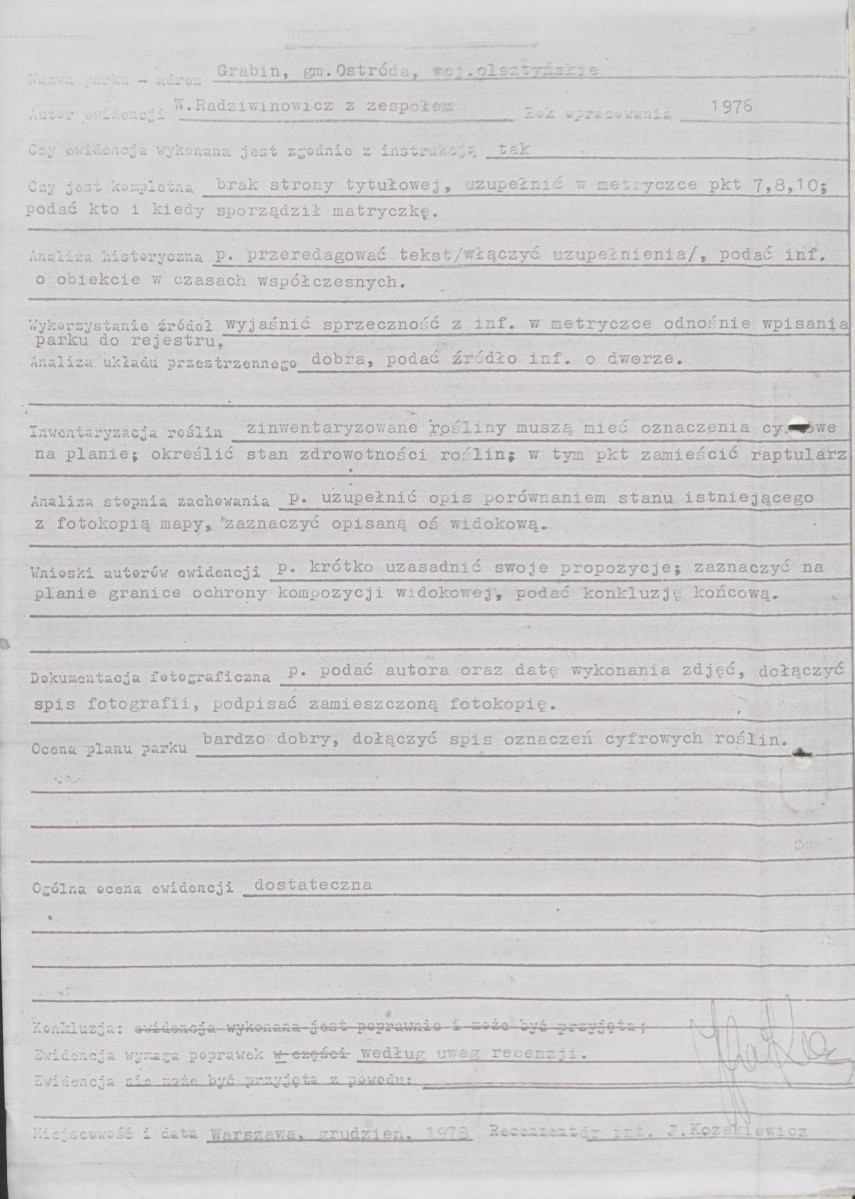 Nazwa parku - adres Grabin, gm.Ostróda, woj.olsztyńskie
Autor ewidencji W.Radziwinowicz z zespołem Rok opracowania 1976
Czy ewidencja wykonana jest zgodnie z instrukcją tak
Czy jest kompletna brak strony tytułowej, uzupełnić w metryczce pkt 7,8,10;
podać kto i kiedy sporządził matryczkę.
Analiza historyczna p. przeredagować tekst/włączyć uzupełnienia/, podać inf.
o obiekcie w czasach współczesnych.
Wykorzystanie źródeł wyjaśnić sprzeczność z inf. w metryczce odnośnie wpisania
parku do rejestru.
Analiza układu przestrzennego dobra, podać źródło inf. o dworze.
Inwentaryzacja roślin zinwentaryzowane rośliny muszą mieć oznaczenia cyfrowe
na planie; określić stan zdrowotności roślin; w tym pkt zamieścić raptularz
Analiza stopnia zachowania p. uzupełnić opis porównaniem stanu istniejącego
z fotokopią mapy, zaznaczyć opisaną oś widokową.
Wnioski autorów ewidencji p. krótko uzasadnić swoje propozycje; zaznaczyć na
planie granice ochrony kompozycji widokowej, podać konkluzję końcową.
Dokumentacja fotograficzna p. podać autora oraz datę wykonania zdjęć, dołączyć
spis fotografii, podpisać zamieszczoną fotokopię.
Ocena planu parku bardzo dobry, dołączyć spis oznaczeń cyfrowych roślin.
Ogólna ocena ewidencji dostateczna
Konkluzja: ewidencja wykonana jest poprawnie i może być przyjęta;
Ewidencja wymaga poprawek w części według uwag recenzji.
Ewidencja nie może być przyjęta z powodu:
Miejscowość i data Warszawa, grudzień, 1978 Recenzent dr inż. J.Kozakiewicz